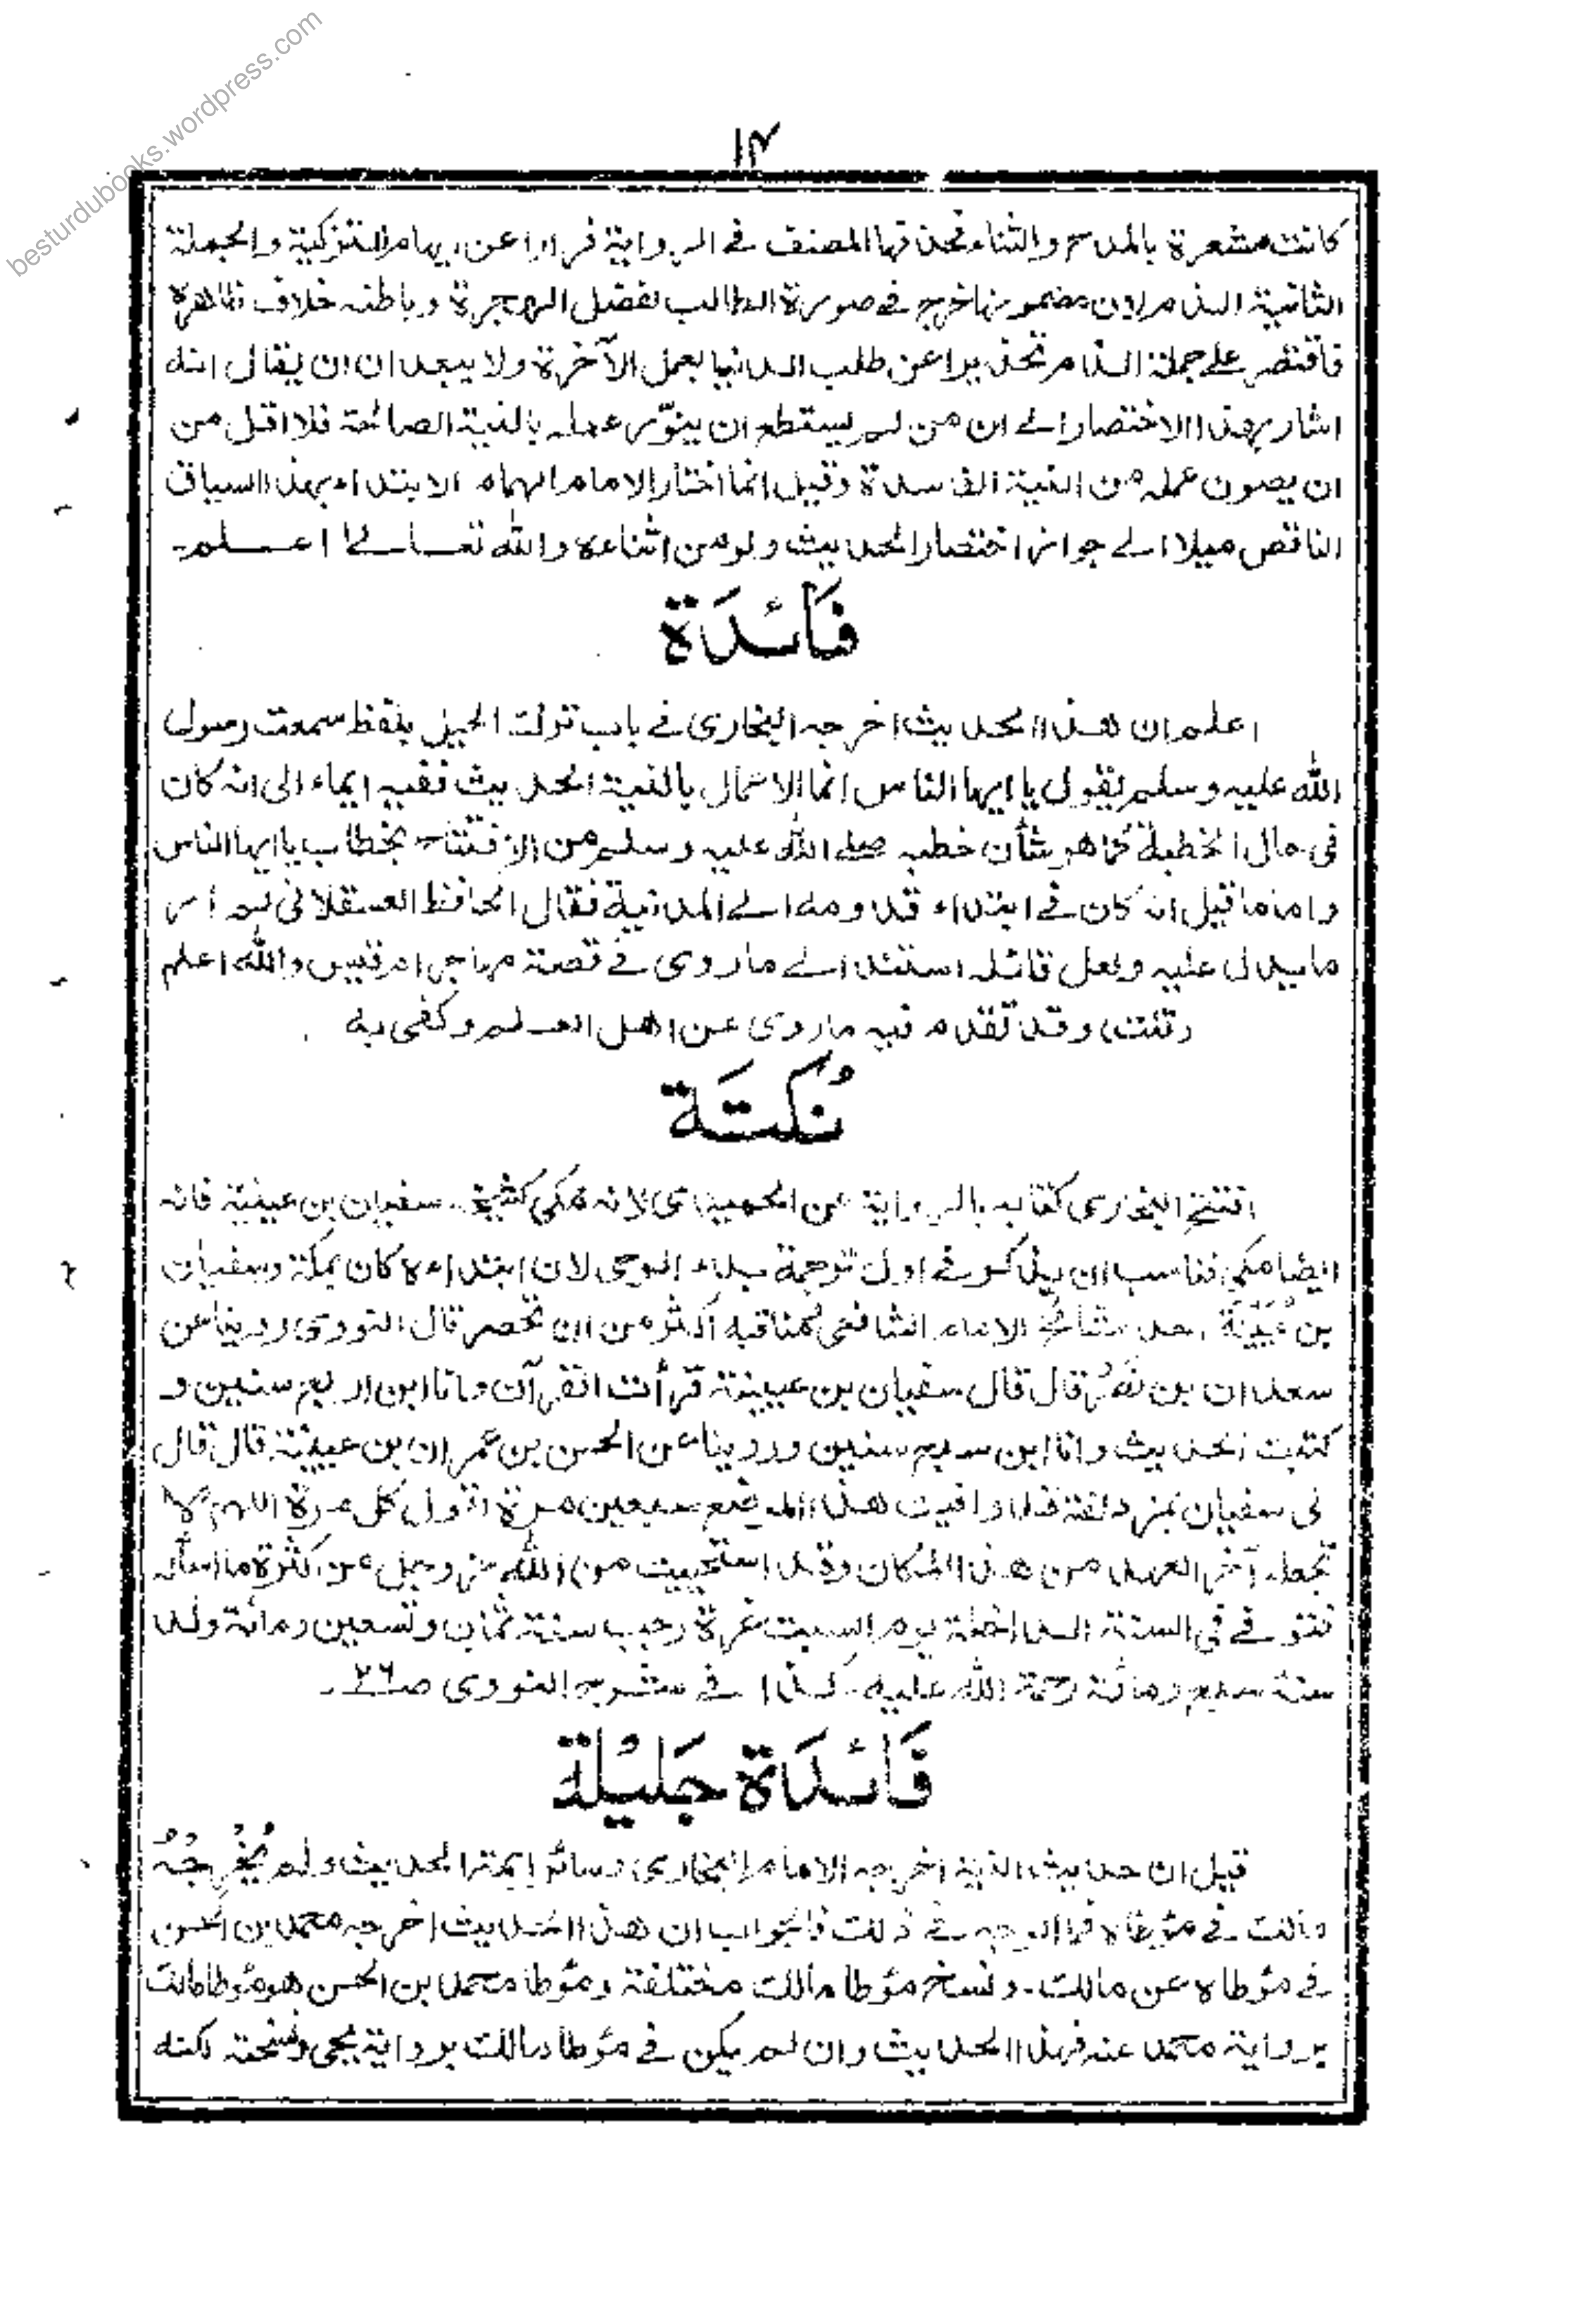 besturdubooks.wordpress.com
۱۴
كانت مشعرة بالمدح والثناء فحذفها المصنف فے الرواية فرارا عن ايهام التزكية والجملة
الثانية الذم لان مضمونها خرج فے صورة الطالب لفضل الهجرة وباطنه خلاف ظاهره
فاقتصر علے جملة الذم تحذيرا عن طلب الدنيا بعمل الآخرة ولا يبعد ان ان يقال انه
اشار بهذا الاختصار الے ان من لم يستطع ان ينوّر عمله بالنية الصالحة فلا اقل من
ان يصون عمله من النية الفاسدة وقيل انما اختار الامام الهمام الابتداء بهذا السياق
الناقص ميلا الے جواز اختصار الحديث ولو من اثناءه والله تعالےٰ اعلم۔
فَائدَة
اعلم ان هذا الحديث اخرجه البخاری فے باب ترك الحيل بلفظ سمعت رسول
الله عليه وسلم يقول يا ايها الناس انما الاعمال بالنية الحديث ففيه ايماء الی انه كان
فی حال الخطبة كما هو شأن خطبه صلے الله عليه وسلم من الافتتاح بخطاب يا ايها الناس
واما ما قيل انه كان فے ابتداء قدومه الے المدينة فقال الحافظ العسقلانی لم أر
ما يدل عليه ولعل قائله استند الے ما روی فے قصة مهاجر ام قيس والله اعلم
(قلت) وقد تقدم فيه ما روی عن اهل العلم وكفى به
نُكتَة
افتتح البخاری كتابه بالرواية عن الحميدی لانه مكی كشيخه سفيان بن عيينة فانه
ايضا مكی فناسب ان يذكر فے اول ترجمة بدء الوحی لان ابتداءه كان بمكة وسفيان
بن عُيَيْنَة احد مشائخ الامام الشافعی ومناقبه أكثر من ان تحصر قال النووی روينا عن
سعدان بن نصر قال قال سفيان بن عيينة قرأت القرآن وانا ابن اربع سنين و
كتبت الحديث وانا ابن سبع سنين وروينا عن الحسن بن عمران بن عيينة قال قال
لی سفيان بمزدلفة قد وافيت هذا الموضع سبعين مرة اقول كل مرة اللهم لا
تجعله آخر العهد من هذا المكان وقد استحييت من الله عز وجل من كثرة ما اسأله
فتوفے فی السنة الداخلة يوم السبت غرة رجب سنة ثمان وتسعين ومائة ولد
سنة سبع ومائة رحمة الله عليه۔ كذا فے شرح النووی صـ۲۶۔
فَائدَة جَليُلة
قيل ان حديث النية اخرجه الامام البخاری وسائر ايمة الحديث ولم يُخْرِجْهُ
مالك فے مؤطاه فما الوجه فے ذلك فالجواب ان هذا الحديث اخرجه محمد بن الحسن
فے مؤطاه عن مالك۔ ونسخ مؤطا مالك مختلفة ومؤطا محمد بن الحسن هو مؤطا مالك
برواية محمد عنه فهذا الحديث وان لم يكن فے مؤطا مالك برواية يحيی ونسخته لكنه